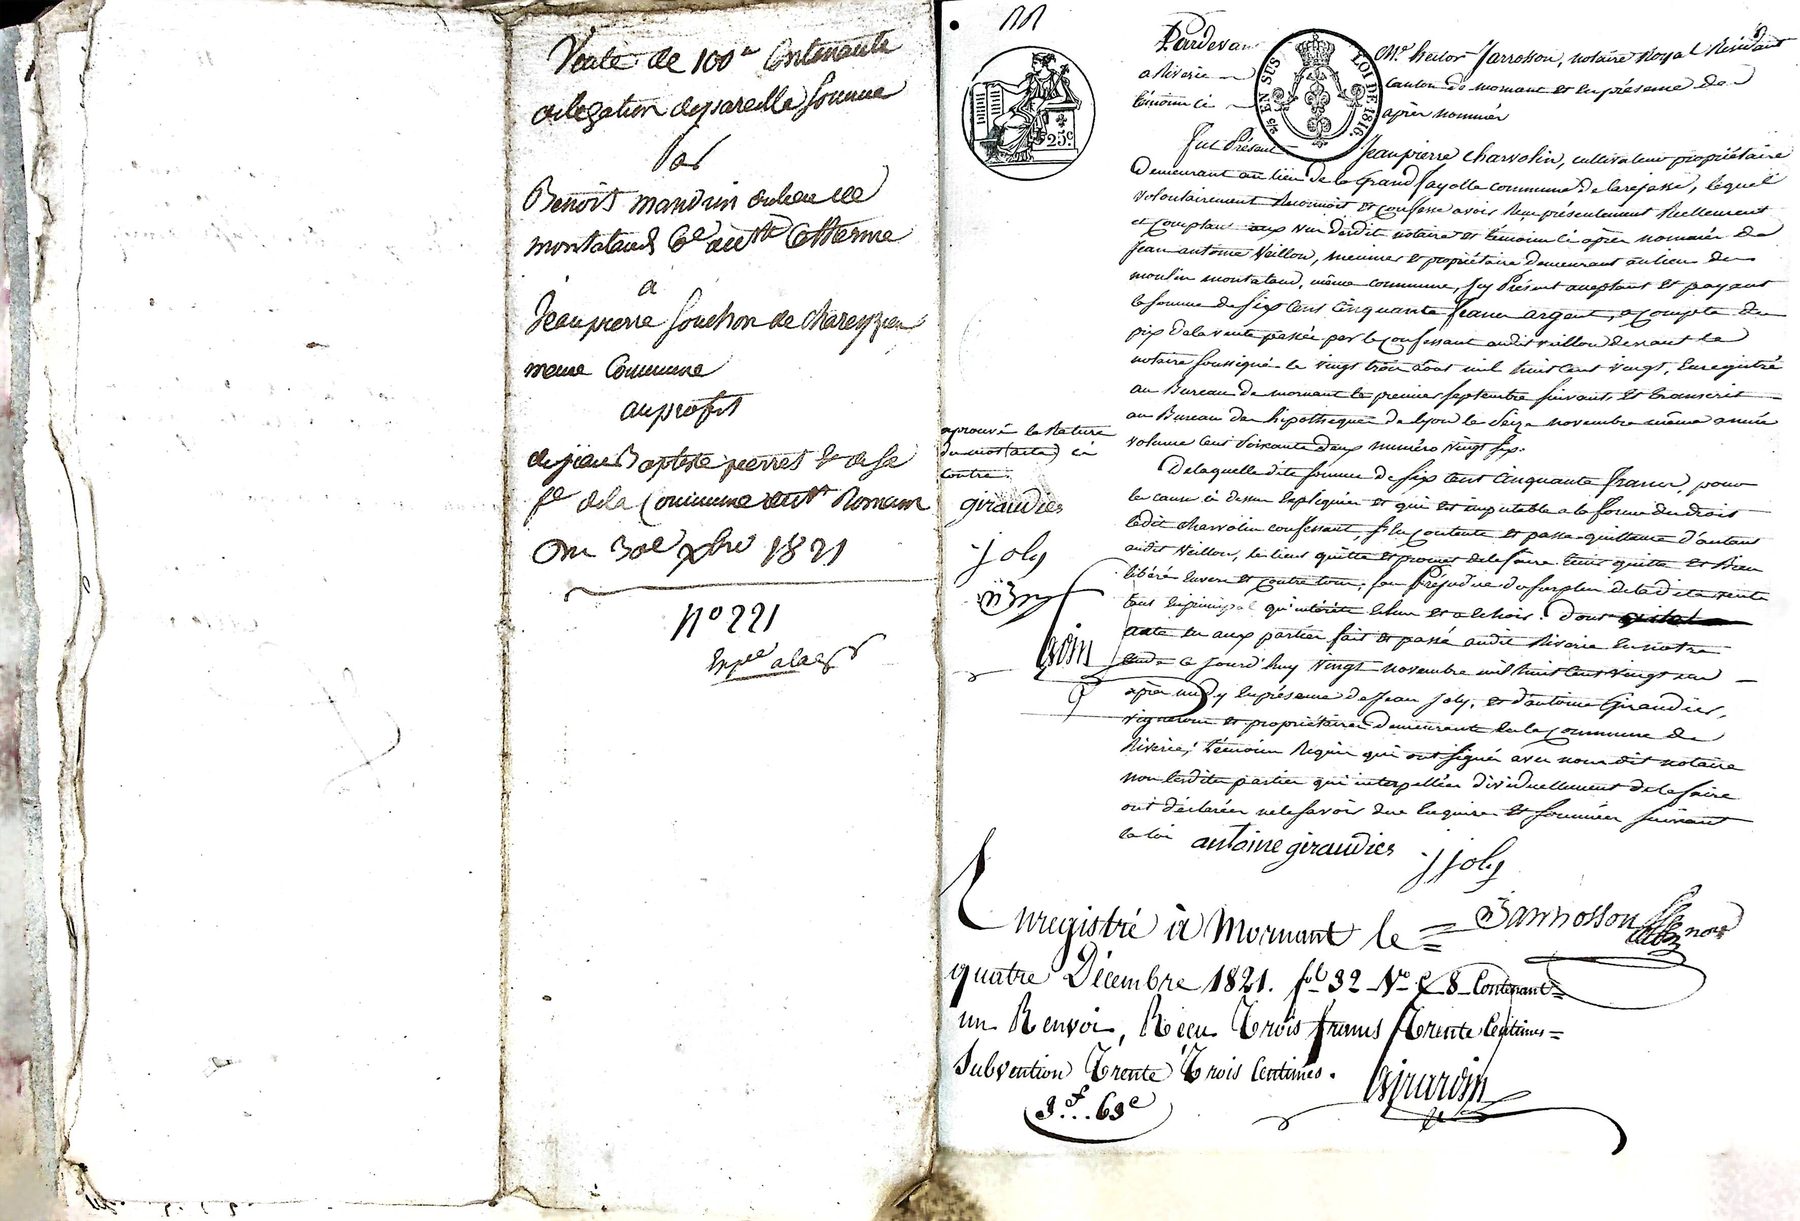 Vente de 100 Contenante
délégation de pareille somme
Par
Benoit mandrin
montaland Cne de Ste Catherine
à
Jean pierre Souchon de
meme Commune
au profit
de jean Baptiste pierret & de sa
fe de la Commune de St Romain
Du 30e Xbre 1821
No 221
Pardevant Me hector Jarrosson, notaire Royal Résidant
à Riverie canton de mornant et en présence des
témoins ci après nommés
Fut Présent Jean pierre Charvolin, cultivateur propriétaire
Demeurant au lieu de la Grand fayolle commune de larajasse, lequel
volontairement Reconnoit et confesse avoir Reçu présentement Réellement
et comptant aux vu dudit notaire et témoins ci après nommés de
Jean antoine Veillon, meunier et propriétaire demeurant au lieu du
moulin montaland, même commune, icy Présent acceptant et payant
la somme de six cens cinquante francs argent, à compte du
prix de la vente passée par le confessant audit veillon devant le
notaire soussigné le vingt trois aout mil huit cent vingt, Enregistré
au Bureau de mornant le premier septembre suivant, et transcrit
au Bureau des hipothèques de lyon le seize novembre même année
volume cent soixante deux numéro vingt six.
De laquelle dite somme de six cens cinquante francs, pour
les causes ci dessus expliquées et qui est imputable a la forme du droit
ledit charvolin confessant, se contente et passe quittance d'autant
audit veillon, le tient quitte et promet de le faire tenir quitte et Bien
libéré envers et contre tous, sans Préjudice du surplus de la dite vente
tant en principal qu'intérêts échus et a échoir. Dont
acte en aux parties fait et passé audit Riverie en notre
étude ce jourd'huy vingt novembre mil huit cent vingt un
après midy en présence de Jean Joly, et d'antoine Giraudier,
vignerons et propriétaires demeurants en la commune de
Riverie, témoins Requis qui ont signés avec nous dit notaire
non lesdites parties qui interpellées dividuellement de le faire
ont déclarées ne le savoir due enquises et sommées suivant
la loi
antoine giraudier
j joly
Jarrosson nore
aprouvé la Rature
du mot (acte) ci
contre.
giraudier
j oly
Enregistré à Mornant le
quatre Décembre 1821. fol 32 Vo C 8 Contenant
un Renvoi, Reçu Trois francs Trente Centimes
Subvention Trente Trois Centimes.
3f.. 63c
Girardin
25 EN SUS
LOI DE 1816.
25c